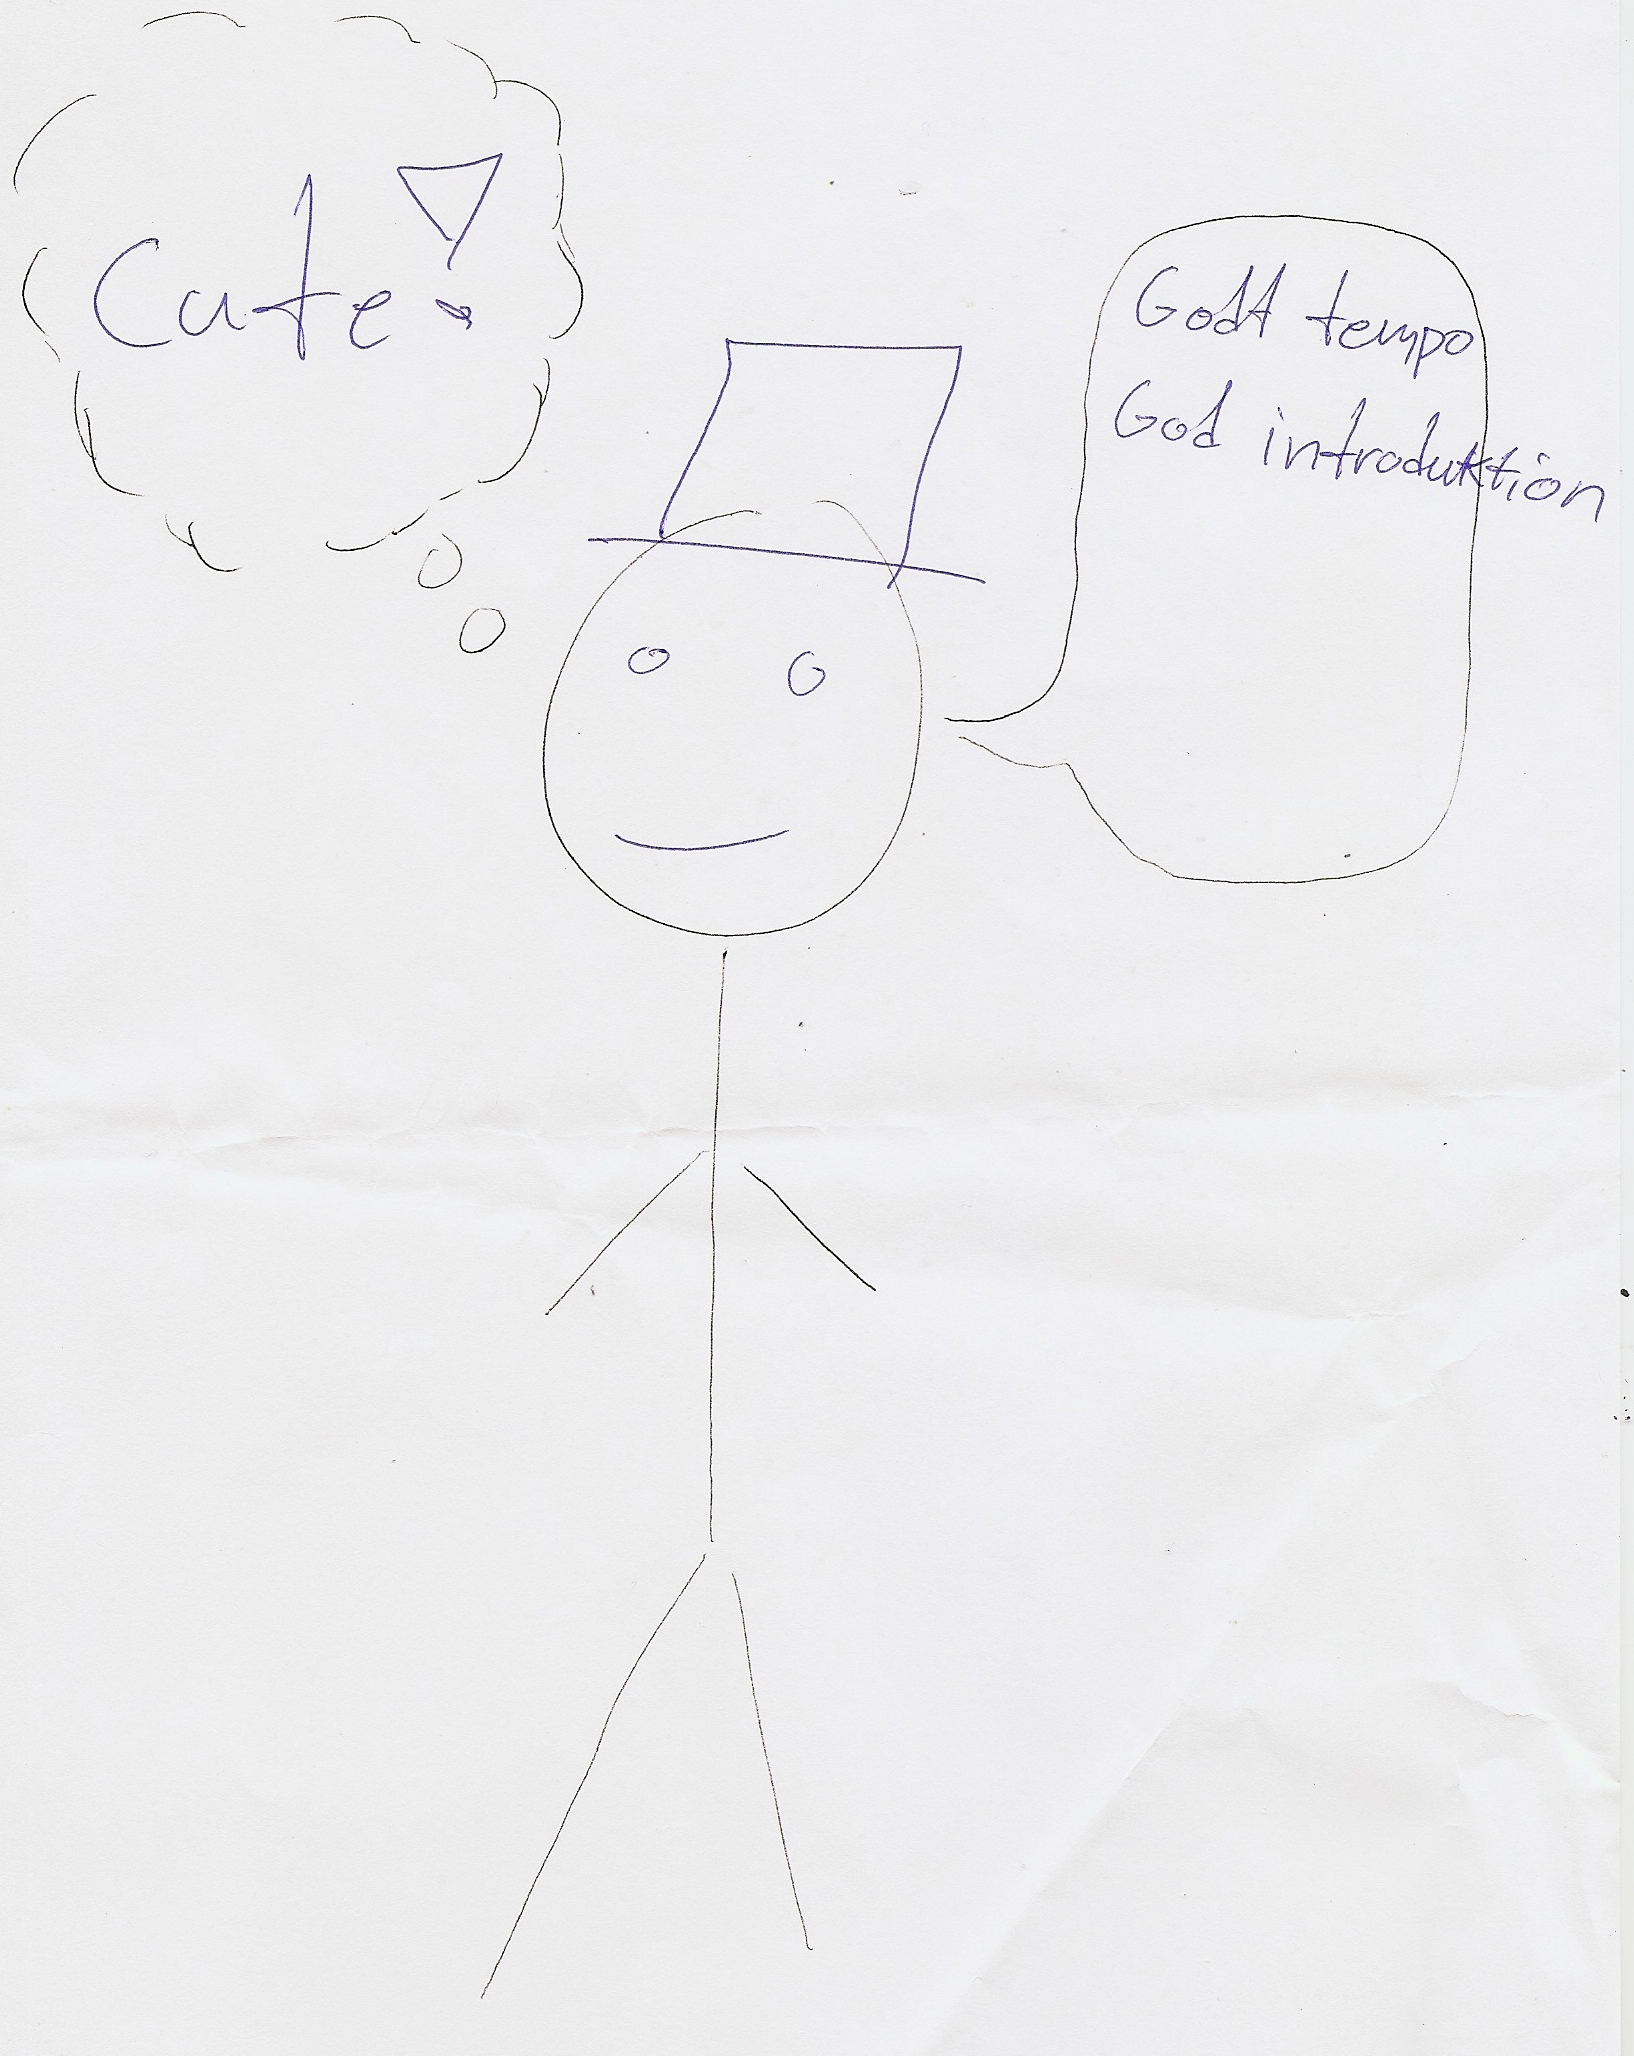 Cute!
Godt tempo
God introduktion